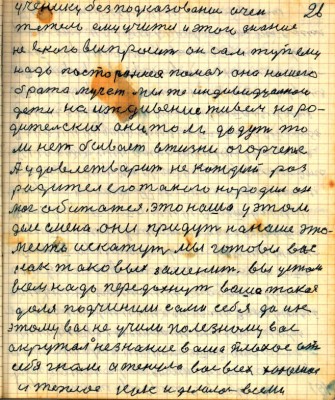 ученику без подказовании очен 26
тежело ему учити и этои знание
не вкого випросит он сам тут ему
надо посторонняя помач она нашего
брата мучет мы же индивидуаной
дети на иждивение живем на ро-
дителских они то ль дадут то
ли нет бивает в жизни огорчение
А удовлетварит не каждый раз
родител кого такого народил он
мог обижатся. это наша у этом
деле смена они придут на наше это
место искатут мы готовы вас
как таковых заменит, вы устали
вам надо передыхнут ваша такая
доля подчинили сами себя да ик
этому вас не учили полезному вас
окружал незнание ваша плохое от
себя гнали а тянули ко всех хорошое
и теплое как и делали всеми